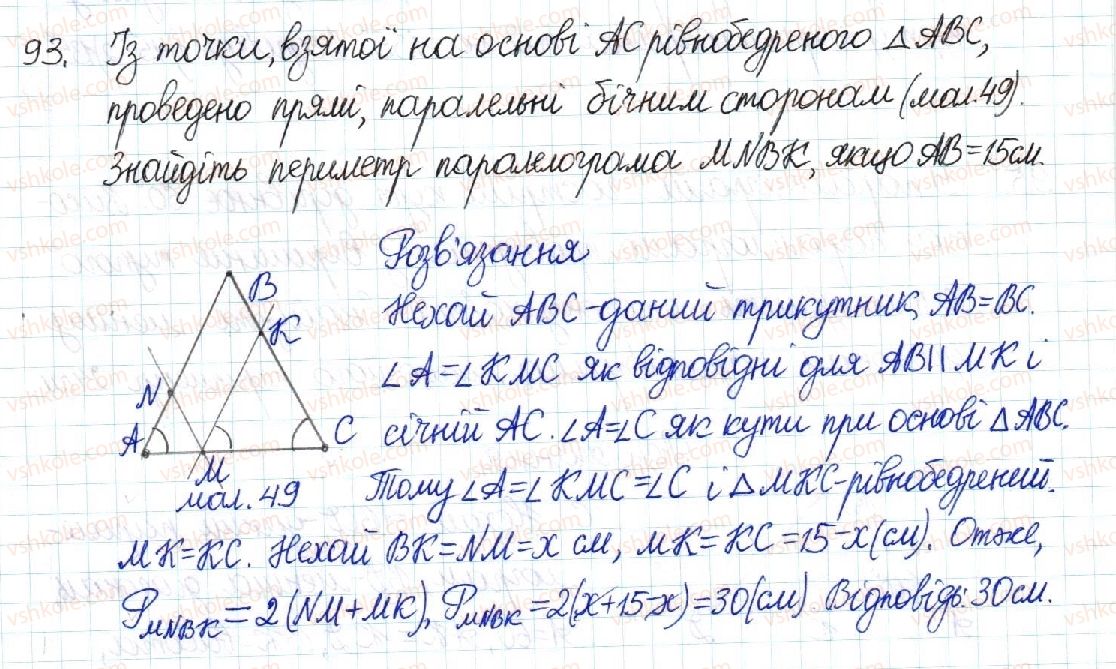 93. Із точки, взятої на основі AC рівнобедреного △ABC,
проведено прямі, паралельні бічним сторонам (мал.49).
Знайдіть периметр паралелограма MNBK, якщо AB=15см.
Розв'язання
Нехай ABC-даний трикутник, AB=BC.
∠A=∠KMC як відповідні для AB||MK і
січній AC. ∠A=∠C як кути при основі △ABC.
Тому ∠A=∠KMC=∠C і △MKC-рівнобедрений.
B
K
N
A
C
M
мал. 49
MK=KC. Нехай BK=NM=x см, MK=KC=15-x(см). Отже,
P_MNBK=2(NM+MK), P_MNBK=2(x+15-x)=30(см). Відповідь: 30см.